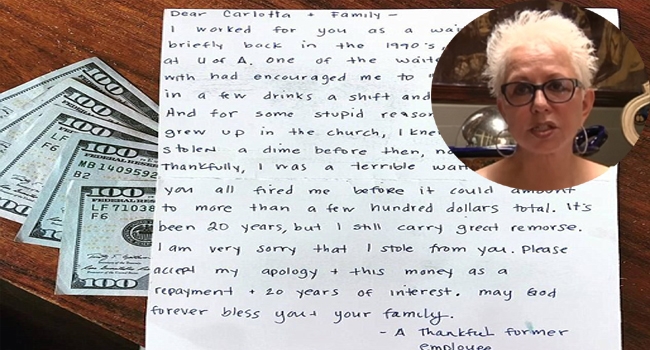 Dear Carlotta + Family -
I worked for you as a
briefly back in the 1990's,
at U of A. One of the
with had encouraged me to
in a few drinks a shift and
And for some stupid
grew up in the church, I
stolen a dime before then,
Thankfully, I was a terrible
you all fired me before it could amount
to more than a few hundred dollars total. It's
been 20 years, but I still carry great remorse.
I am very sorry that I stole from you. Please
accept my apology + this money as a
repayment + 20 years of interest. May God
forever bless you + your family.
- A Thankful former
employee
100
100
LF
F6
100
FEDERAL RESERVE
MB1409592
B2
100
FEDERAL RESERVE
LF71038
F6
100